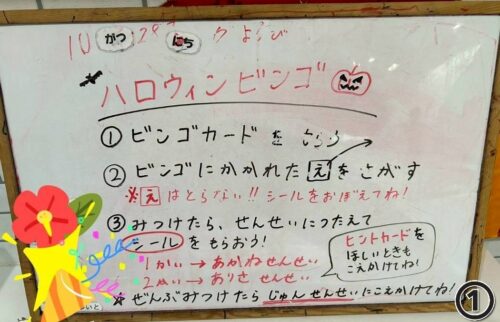 10 がつ 29 にち ようび
ハロウィンビンゴ
① ビンゴカードを もらう
② ビンゴにかかれた え を さがす
※ え は とらない!! シールを おぼえてね!
③ みつけたら、せんせいにつたえて
シールを もらおう!
1かい → あかねせんせい
2かい → おりさ せんせい
ヒントカードを
ほしいときも
こえかけてね!
★ ぜんぶみつけたら じゅんせんせいにこえかけてね!
①